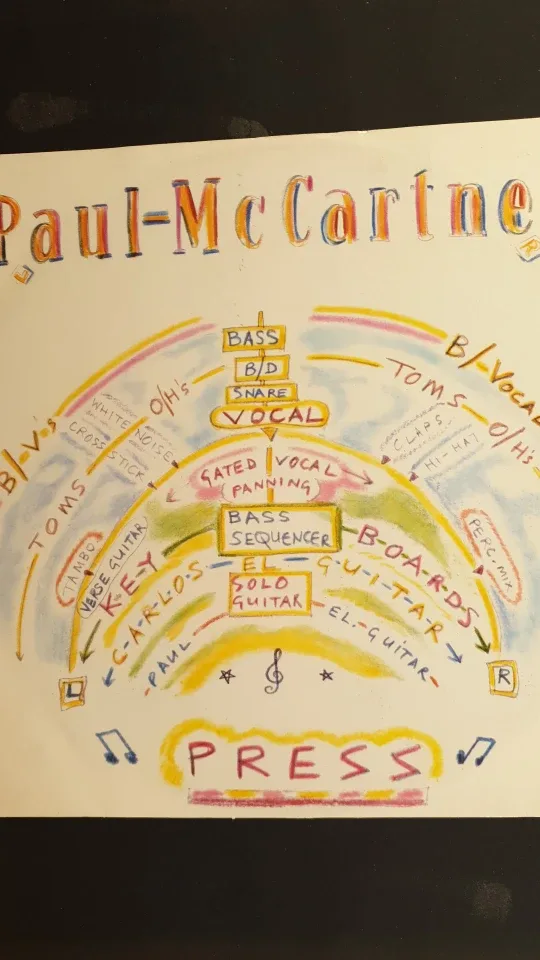 Paul-McCartne
L
R
BASS
B/D
SNARE
VOCAL
B/-V's
B/-VOCAL
O/H's
O/H's
TOMS
TOMS
WHITE NOISE
CROSS STICK
CLAPS
HI-HAT
GATED VOCAL
PANNING
TAMBO
VERSE GUITAR
PERC. MIX
BASS
SEQUENCER
KEY-BOARDS
CARLOS EL GUITAR
SOLO
GUITAR
PAUL EL-GUITAR
L
R
PRESS